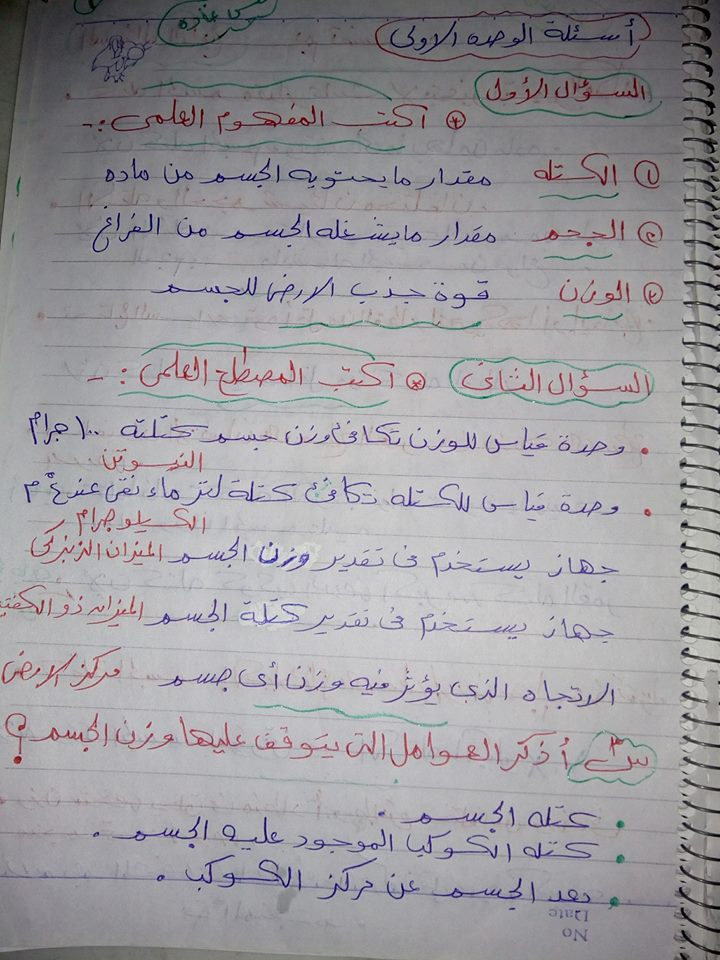 أسئلة الوحده الاولى
السؤال الأول
* أكتب المفهوم العلمى :-
① الكتله مقدار ما يحتويه الجسم من ماده
② الحجم مقدار ما يشغله الجسم من الفراغ
③ الوزن قوة جذب الارض للجسم
السؤال الثانى * أكتب المصطلح العلمى :-
• وحدة قياس للوزن تكافئ وزن جسم كتلته ١٠٠ جرام
النيوتن
• وحدة قياس للكتله تكافئ كتلة لتر ماء نقى عند ٤°م
الكيلو جرام
جهاز يستخدم فى تقدير وزن الجسم الميزان الزنبركى
جهاز يستخدم فى تقدير كتلة الجسم الميزان ذو الكفتين
الاتجاه الذى يؤثر فيه وزن أى جسم مركز الارض
س٣ أذكر العوامل التى يتوقف عليها وزن الجسم ؟
• كتله الجسم .
• كتله الكوكب الموجود عليه الجسم .
• بعد الجسم عن مركز الكوكب .
Date
No